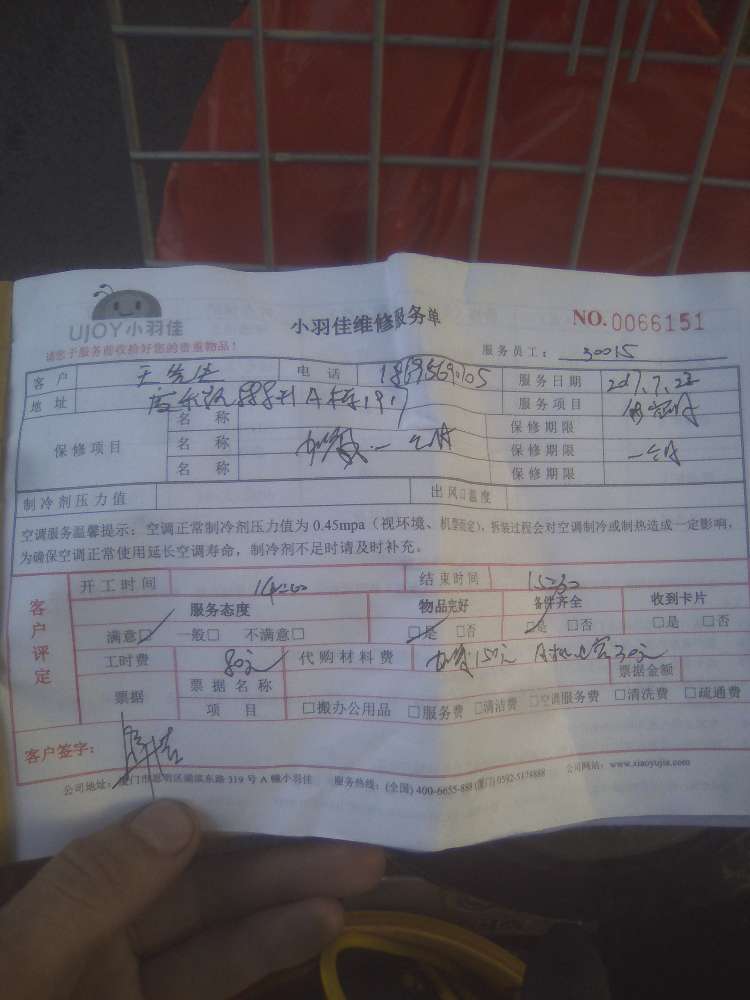 UJOY小羽佳
小羽佳维修服务单
NO. 0066151
请您于服务前收拾好您的贵重物品！
服务员工： 30015
客户 电话 服务日期 2017.7.22
地址 服务项目
保修项目
名称 保修期限
名称 加氨 一个月 保修期限 一个月
名称 保修期限
制冷剂压力值 出风口温度
空调服务温馨提示：空调正常制冷剂压力值为 0.45mpa（视环境、机型而定），拆装过程会对空调制冷或制热造成一定影响，
为确保空调正常使用延长空调寿命，制冷剂不足时请及时补充。
客户评定
开工时间 14:00 结束时间 15:30
服务态度 物品完好 备件齐全 收到卡片
满意□ 一般□ 不满意□ □是 □否 □是 □否 □是 □否
工时费 80元 代购材料费 150元 30元
票据 票据名称 票据金额
项目 □搬办公用品 □服务费 □清洁费 □空调服务费 □清洗费 □疏通费
客户签字：
公司地址：厦门市思明区湖滨东路 319 号 A 幢小羽佳 服务热线：(全国) 400-6655-888 (厦门) 0592-5178888 公司网站：www.xiaoyujia.com